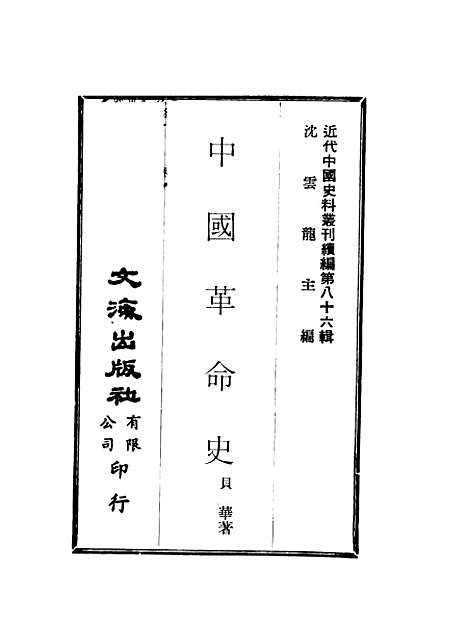 近代中國史料叢刊續編第八十六輯
沈雲龍主編
中國革命史
貝華著
文海出版社
有限公司
印行